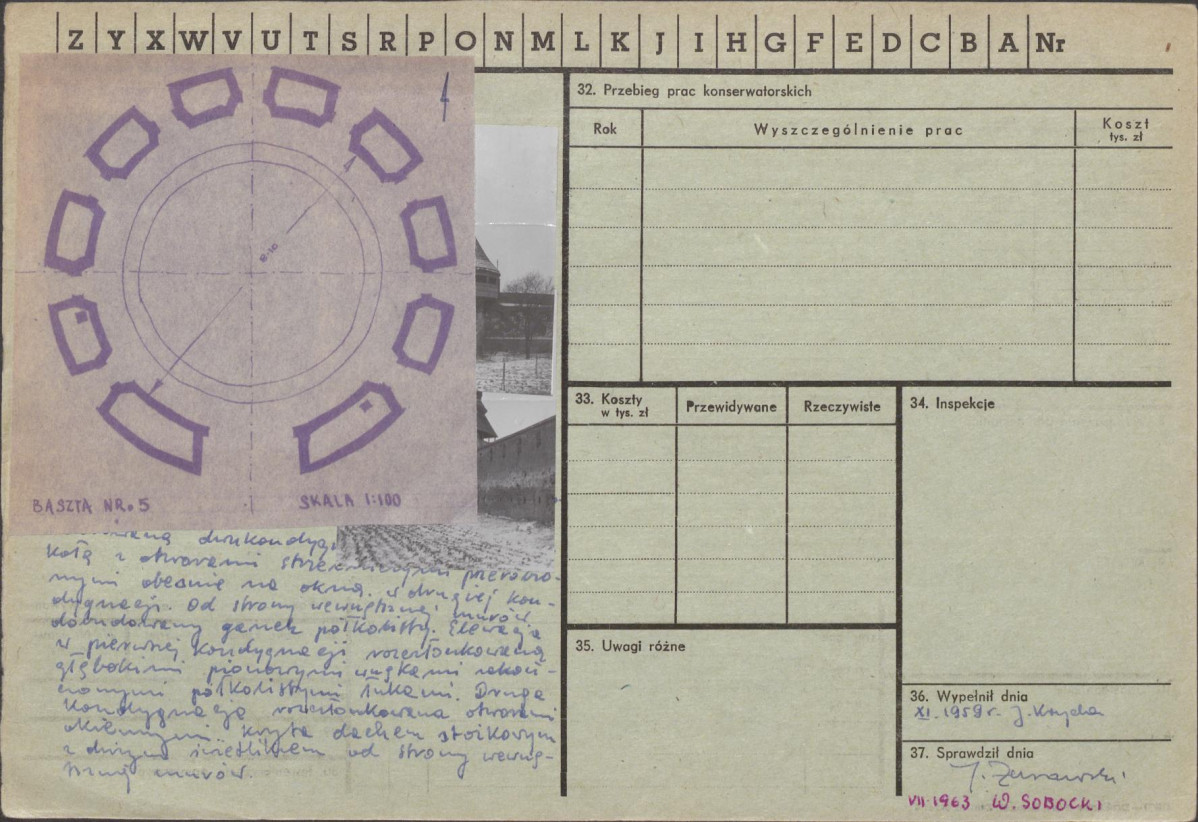 Z Y X W V U T S R P O N M L K J I H G F E D C B A Nr
1
8.10
BASZTA NR. 5 SKALA 1:100
dwukondyg
kołą z otworami strzelniczymi przerobio-
nymi obecnie na okna, w drugiej kon-
dygnacji. Od strony wewnętrznej murów
dobudowany ganek półkolisty. Elewacja
w pierwszej kondygnacji rozczłonkowana
głębokimi pionowymi wnękami zakoń-
czonymi półkolistymi łukami. Druga
kondygnacja rozczłonkowana otworami
okiennymi. Kryta dachem stożkowym
z dużym świetlikiem od strony wewnę-
trznej murów.
32. Przebieg prac konserwatorskich
Rok Wyszczególnienie prac Koszt
tys. zł
33. Koszty
w tys. zł
Przewidywane Rzeczywiste
34. Inspekcje
35. Uwagi różne
36. Wypełnił dnia
XI. 1959 r. J.
37. Sprawdził dnia
VII 1963 W. SOBOCKI